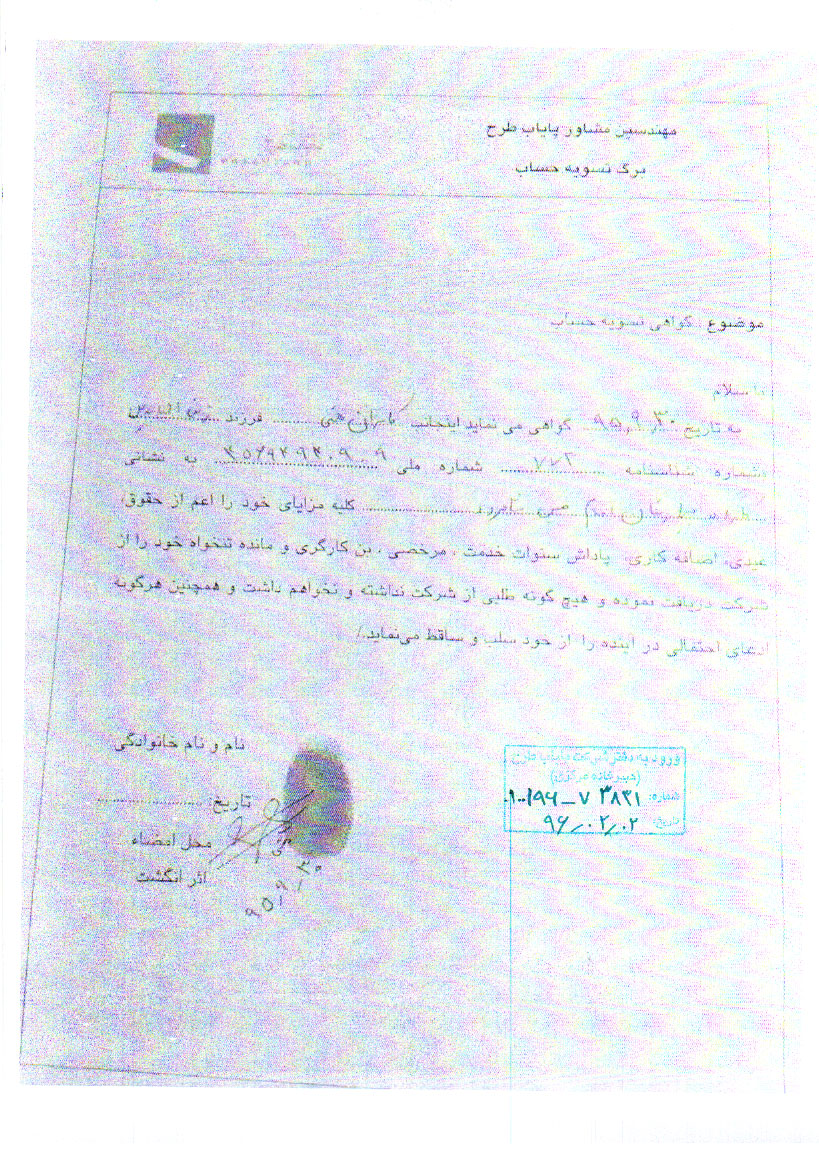 مهندسین مشاور پایاب طرح
برگ تسویه حساب
موضوع : گواهی تسویه حساب
با سلام
به تاریخ ۹۵,۹,۳۰ گواهی می نماید اینجانب کامران ........ فرزند
شماره شناسنامه ........ ۷۷۲ شماره ملی به نشانی
........ کلیه مزایای خود را اعم از حقوق،
عیدی، اضافه کاری، پاداش سنوات خدمت ، مرخصی ، بن کارگری و مانده تنخواه خود را از
شرکت دریافت نموده و هیچ گونه طلبی از شرکت نداشته و نخواهم داشت و همچنین هرگونه
ادعای احتمالی در اینده را از خود سلب و ساقط می‌نماید./
نام و نام خانوادگی
تاریخ: ........
محل امضاء
اثر انگشت
۹۵,۹,۳۰
ورود به دفتر شرکت پایاب طرح
(دبیرخانه مرکزی)
شماره:
تاریخ: ۹۶,۰۲,۰۲